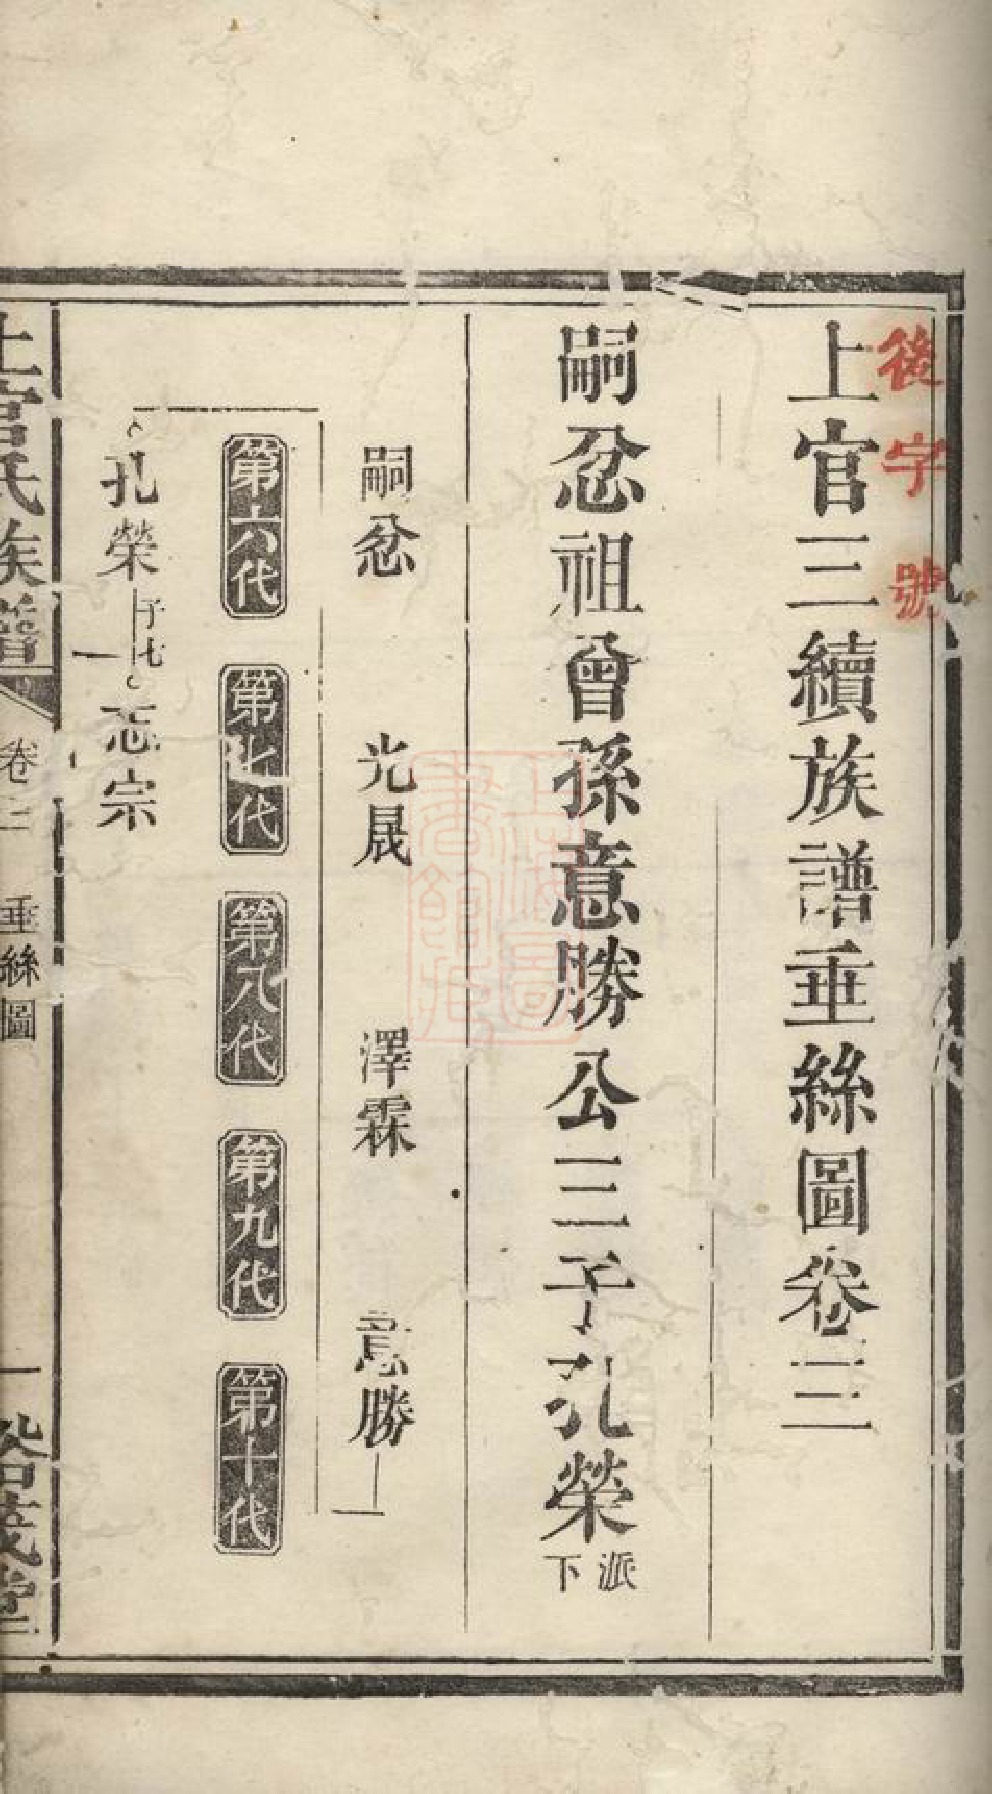 後字號
上官三續族譜垂絲圖卷三
嗣忿祖曾孫意勝公三子孔榮派下
嗣忿 光晟 澤霖 意勝
第六代 第七代 第八代 第九代 第十代
孔榮 子七 志宗
上官氏族譜 卷三 垂絲圖 一